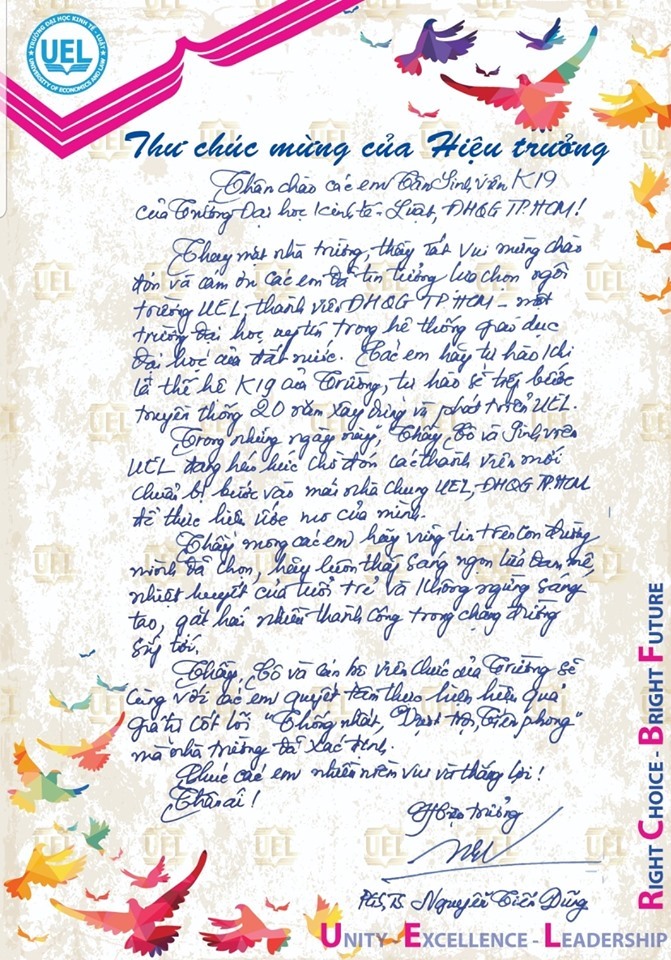 TRƯỜNG ĐẠI HỌC KINH TẾ - LUẬT
UEL
UNIVERSITY OF ECONOMICS AND LAW
Thư chúc mừng của Hiệu trưởng
Thân chào các em Tân Sinh viên K19
của Trường Đại học Kinh tế - Luật, ĐHQG TP.HCM!
Thay mặt nhà trường, thầy rất vui mừng chào
đón và cảm ơn các em đã tin tưởng lựa chọn ngôi
trường UEL, thành viên ĐHQG TP.HCM - một
trường đại học uy tín trong hệ thống giáo dục
Đại học của đất nước. Các em hãy tự hào khi
là thế hệ K19 của Trường, tự hào sẽ tiếp bước
truyền thống 20 năm xây dựng và phát triển UEL.
Trong những ngày này, Thầy, Cô và Sinh viên
UEL đang háo hức chờ đón các thành viên mới
chuẩn bị bước vào mái nhà chung UEL, ĐHQG TP.HCM
để thực hiện ước mơ của mình.
Thầy mong các em hãy vững tin trên con đường
mình đã chọn, hãy luôn thắp sáng ngọn lửa đam mê,
nhiệt huyết của tuổi trẻ và không ngừng sáng
tạo, gặt hái nhiều thành công trong chặng đường
sắp tới.
Thầy, Cô và cán bộ viên chức của Trường sẽ
cùng với các em quyết tâm thực hiện hiệu quả
giá trị cốt lõi "Thống nhất, Vượt trội, Tiên phong"
mà nhà trường đã xác định.
Chúc các em nhiều niềm vui và thắng lợi!
Thân ái!
Hiệu trưởng
PGS, TS Nguyễn Tiến Dũng
UNITY - EXCELLENCE - LEADERSHIP
RIGHT CHOICE - BRIGHT FUTURE